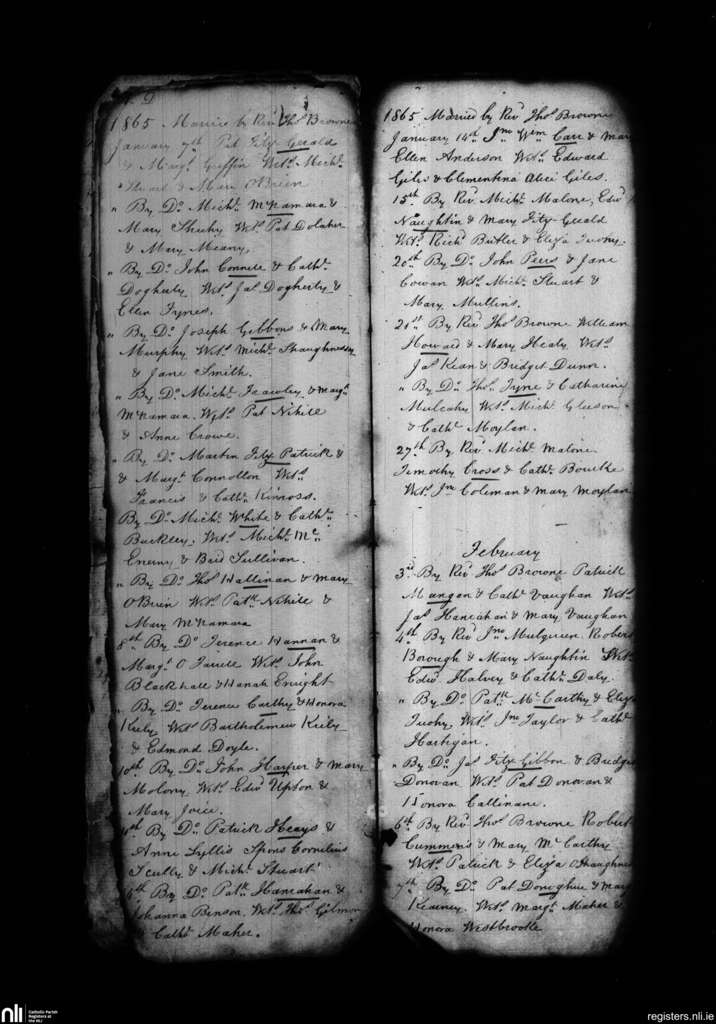 A. D
1865 Married by Revd Thos Browne
January 7th Pat Fitz Gerald
& Margt Griffin Wits Michl
Stuard & Mary O'Brien
" By Do Michl McNamara &
Mary Sheehy Wits Pat Dolaher
& Mary Meany
" By Do John Connell & Cathe
Dogherty Wits Jas Dogherty &
Ellen Tynes.
" By Do Joseph Gibbons & Mary
Murphy Wits Michl Shaughnessy
& Jane Smith.
" By Do Michl Frawley & Margt
McNamara. Wits Pat Nihill
& Anne Crowe.
" By Do Martin Fitz Patrick &
& Margt Connollon Wits
Francis & Cathe Kinross.
By Do Michl White & Cathe
Buckley. Wits Michl Mc
Enerny & Bard Sullivan.
" By Do Thos Hallinan & Mary
O'Brien Wits Patk Nihill &
Mary McNamara
8th By Do Terence Hannan &
Margt O'Farrell Wits John
Blackhall & Hanah Enright
" By Do Terence Carthy & Honora
Kiely Wits Bartholomew Kiely
& Edmond Doyle.
10th By Do John Harper & Mary
Molony Wits Edwd Upton &
Mary Joice.
By Do Patrick Heays &
Anne Lyllis Spons Cornelius
Scully & Michl Stuart
By Do Patk Hanrahan &
Johanna Benson. Wits Thos Gilmor
& Cathe Maher.
1865 Married by Revd Thos Browne
January 14th Jno Wm Carr & Mary
Ellen Anderson Wits Edward
Giles & Clementina Alice Giles.
15th By Revd Michl Malone, Edwd
Naughtin & Mary Fitz-Gerald
Wits Richd Butler & Eliza Twony
20th By Do John Peers & Jane
Cowan Wits Michl Stuart &
Mary Mullins.
21st By Revd Thos Browne William
Howard & Mary Healy Wits
Jas Kean & Bridget Dunn.
" By Do Thos Tyne & Catharine
Mulcahy Wits Michl Gleeson
& Cathe Moylan.
27th By Revd Michl Malone
Timothy Cross & Cathe Bourke
Wits Jno Coleman & Mary Moylan
February
3rd By Revd Thos Browne Patrick
Mungan & Cathe Vaughan Wits
Jas Hanrahan & Mary Vaughan
4th By Revd Jno Mulqueen Robert
Borough & Mary Naughtin Wits
Edwd Halvey & Cathe Daly.
" By Do Patk McCarthy & Eliza
Tuohy Wits Jno Taylor & Cathe
Hartigan.
" By Do Jas Fitz Gibbon & Bridget
Donovan Wits Pat Donovan &
Honora Callinane.
6th By Revd Thos Browne Robert
Cummons & Mary McCarthy
Wits Patrick & Eliza O'Shaughness
7th By Do Pat Donoghue & Marg
Kearney. Wits Margt Maher &
Honora Westbrooke
nli
Catholic Parish
Registers at
the NLI
registers.nli.ie